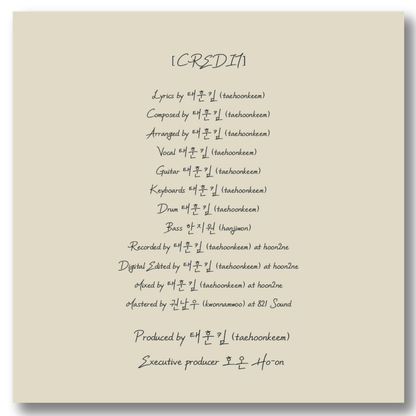 [CREDIT]
Lyrics by 태훈킴 (taehoonkeem)
Composed by 태훈킴 (taehoonkeem)
Arranged by 태훈킴 (taehoonkeem)
Vocal 태훈킴 (taehoonkeem)
Guitar 태훈킴 (taehoonkeem)
Keyboards 태훈킴 (taehoonkeem)
Drum 태훈킴 (taehoonkeem)
Bass 한지원 (hanjiwon)
Recorded by 태훈킴 (taehoonkeem) at hoon2ne
Digital Edited by 태훈킴 (taehoonkeem) at hoon2ne
Mixed by 태훈킴 (taehoonkeem) at hoon2ne
Mastered by 권남우 (kwonnamwoo) at 821 Sound
Produced by 태훈킴 (taehoonkeem)
Executive producer 호온 Ho-on